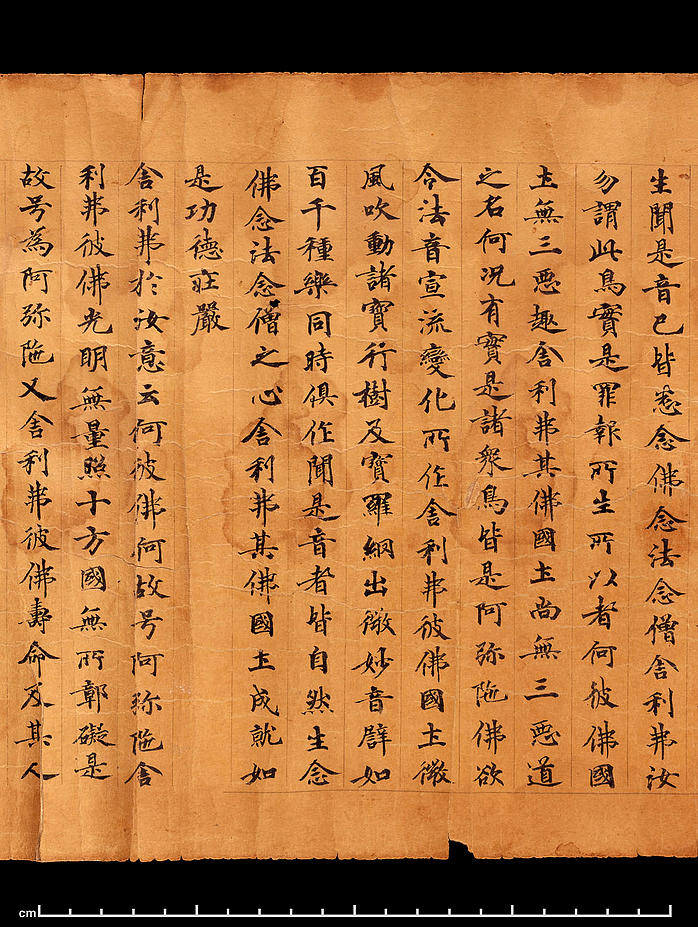 生聞是音已皆悉念佛念法念僧舍利弗汝
勿謂此鳥實是罪報所生所以者何彼佛國
土無三惡趣舍利弗其佛國土尚無三惡道
之名何況有實是諸衆鳥皆是阿弥陁佛欲
令法音宣流變化所作舍利弗彼佛國土微
風吹動諸寶行樹及寶羅網出微妙音譬如
百千種樂同時俱作聞是音者皆自然生念
佛念法念僧之心舍利弗其佛國土成就如
是功德莊嚴
舍利弗於汝意云何彼佛何故号阿弥陁舍
利弗彼佛光明無量照十方國無所鄣礙是
故号為阿弥陁又舍利弗彼佛壽命及其人
cm